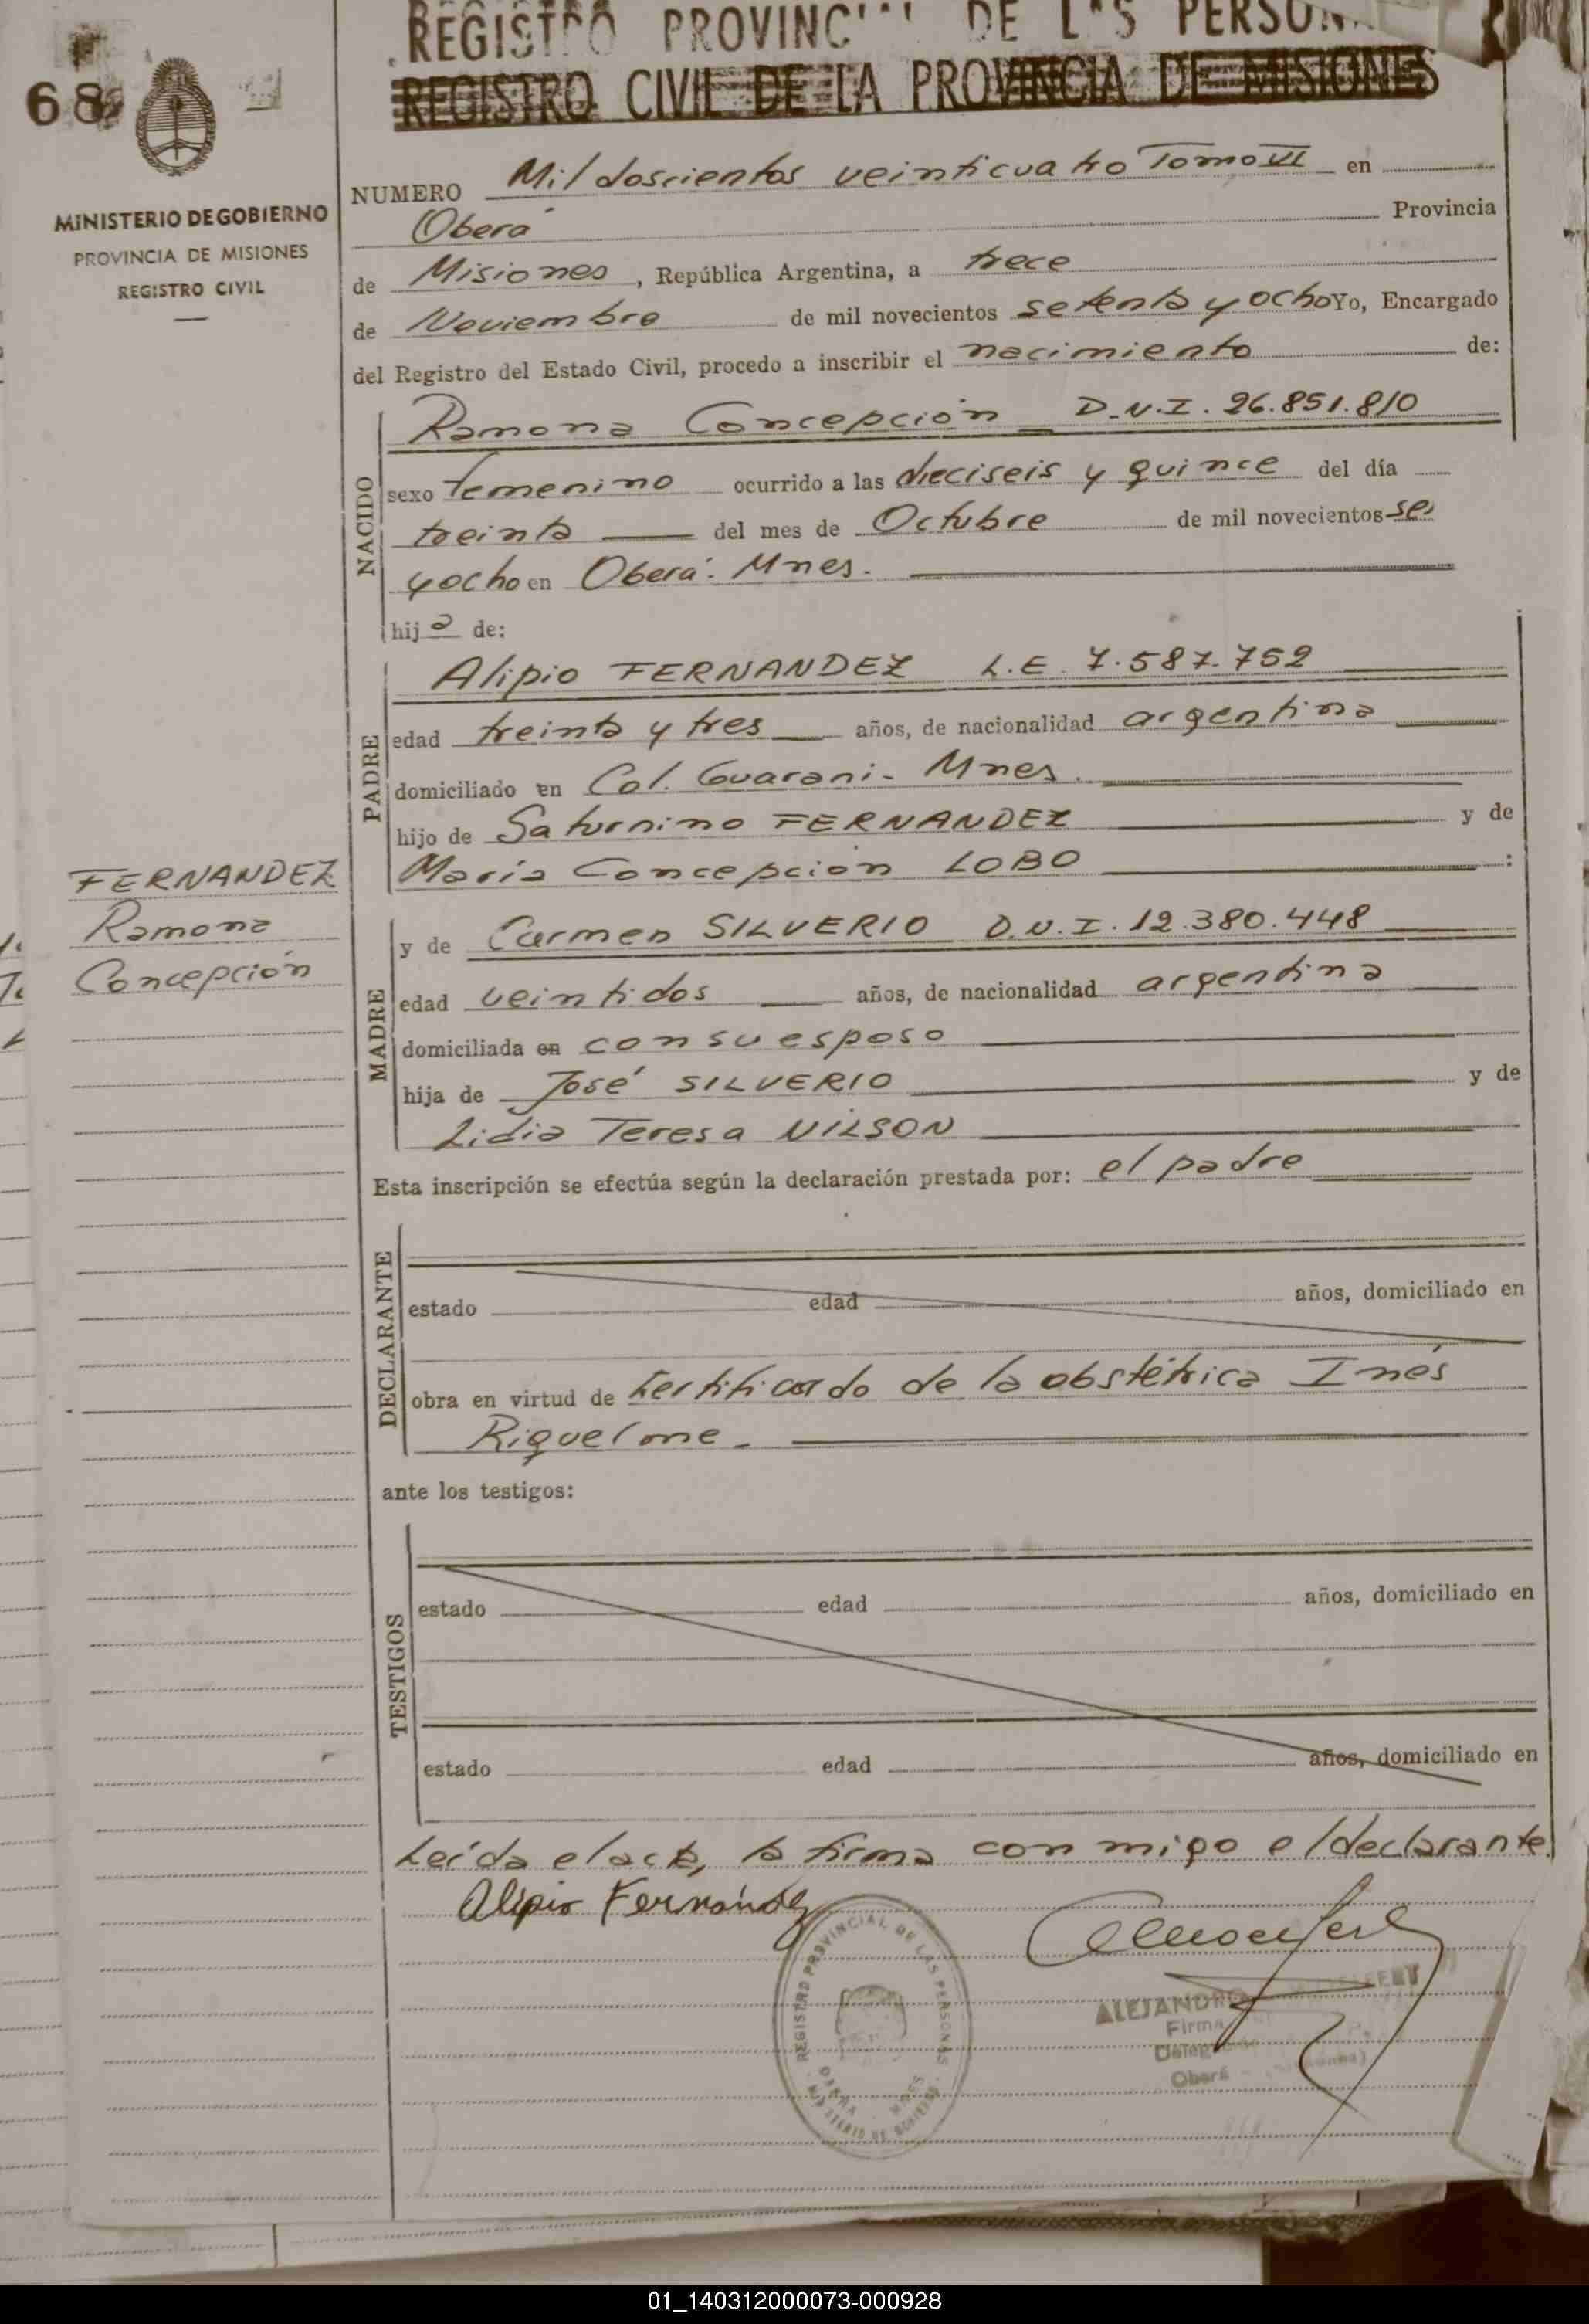 REGISTRO PROVINC DE L S PERSON
REGISTRO CIVIL DE LA PROVINCIA DE MISIONES
68
MINISTERIO DE GOBIERNO
PROVINCIA DE MISIONES
REGISTRO CIVIL
NUMERO Mil doscientos veinticuatro Tomo VI en
Oberá Provincia
de Misiones, República Argentina, a trece
de Noviembre de mil novecientos setenta y ocho Yo, Encargado
del Registro del Estado Civil, procedo a inscribir el nacimiento de:
NACIDO
Ramona Concepción D.N.I. 26.851.810
sexo femenino ocurrido a las dieciseis y quince del día
treinta del mes de Octubre de mil novecientos se
y ocho en Oberá. Mnes.
hija de:
PADRE
Alipio FERNANDEZ L.E. 7.587.752
edad treinta y tres años, de nacionalidad argentina
domiciliado en Col. Guarani - Mnes.
hijo de Saturnino FERNANDEZ y de
María Concepcion LOBO :
FERNANDEZ
Ramona
Concepción
MADRE
y de Carmen SILVERIO D.N.I. 12.380.448
edad veintidos años, de nacionalidad argentina
domiciliada en con su esposo
hija de José SILVERIO y de
Lidia Teresa NILSON
Esta inscripción se efectúa según la declaración prestada por: el padre
DECLARANTE
estado edad años, domiciliado en
obra en virtud de certificado de la obstétrica Inés
Riquelme.
ante los testigos:
TESTIGOS
estado edad años, domiciliado en
estado edad años, domiciliado en
Leída el acta, la firma con migo el declarante.
Alipio Fernández
REGISTRO PROVINCIAL DE LAS PERSONAS
ALEJANDRO
Firma
Oberá
01_140312000073-000928